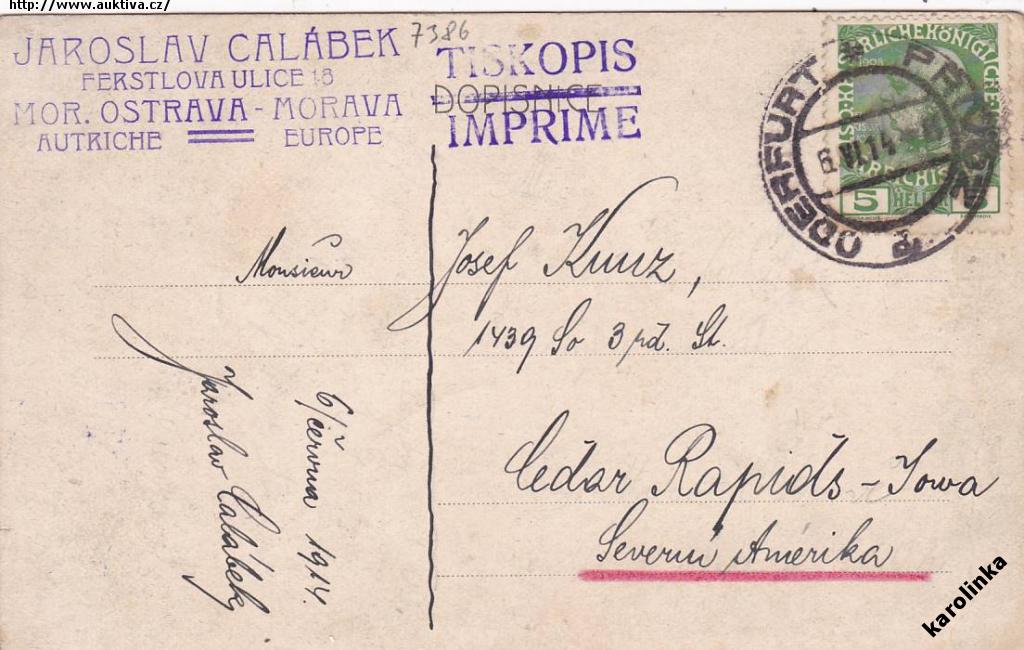 http://www.auktiva.cz/
JAROSLAV CALÁBEK
FERSTLOVA ULICE 18
MOR. OSTRAVA - MORAVA
AUTRICHE EUROPE
7386
TISKOPIS
DOPISNICE
IMPRIME
ODERFURT * PŘÍVOZ
6.VI.14
5 HELLER 5
1908
Monsieur
Josef Kunz,
1439 So 3rd. St.
Cedar Rapids - Iowa
Severní Amerika
6/června 1914.
Jaroslav Calábek
karolinka